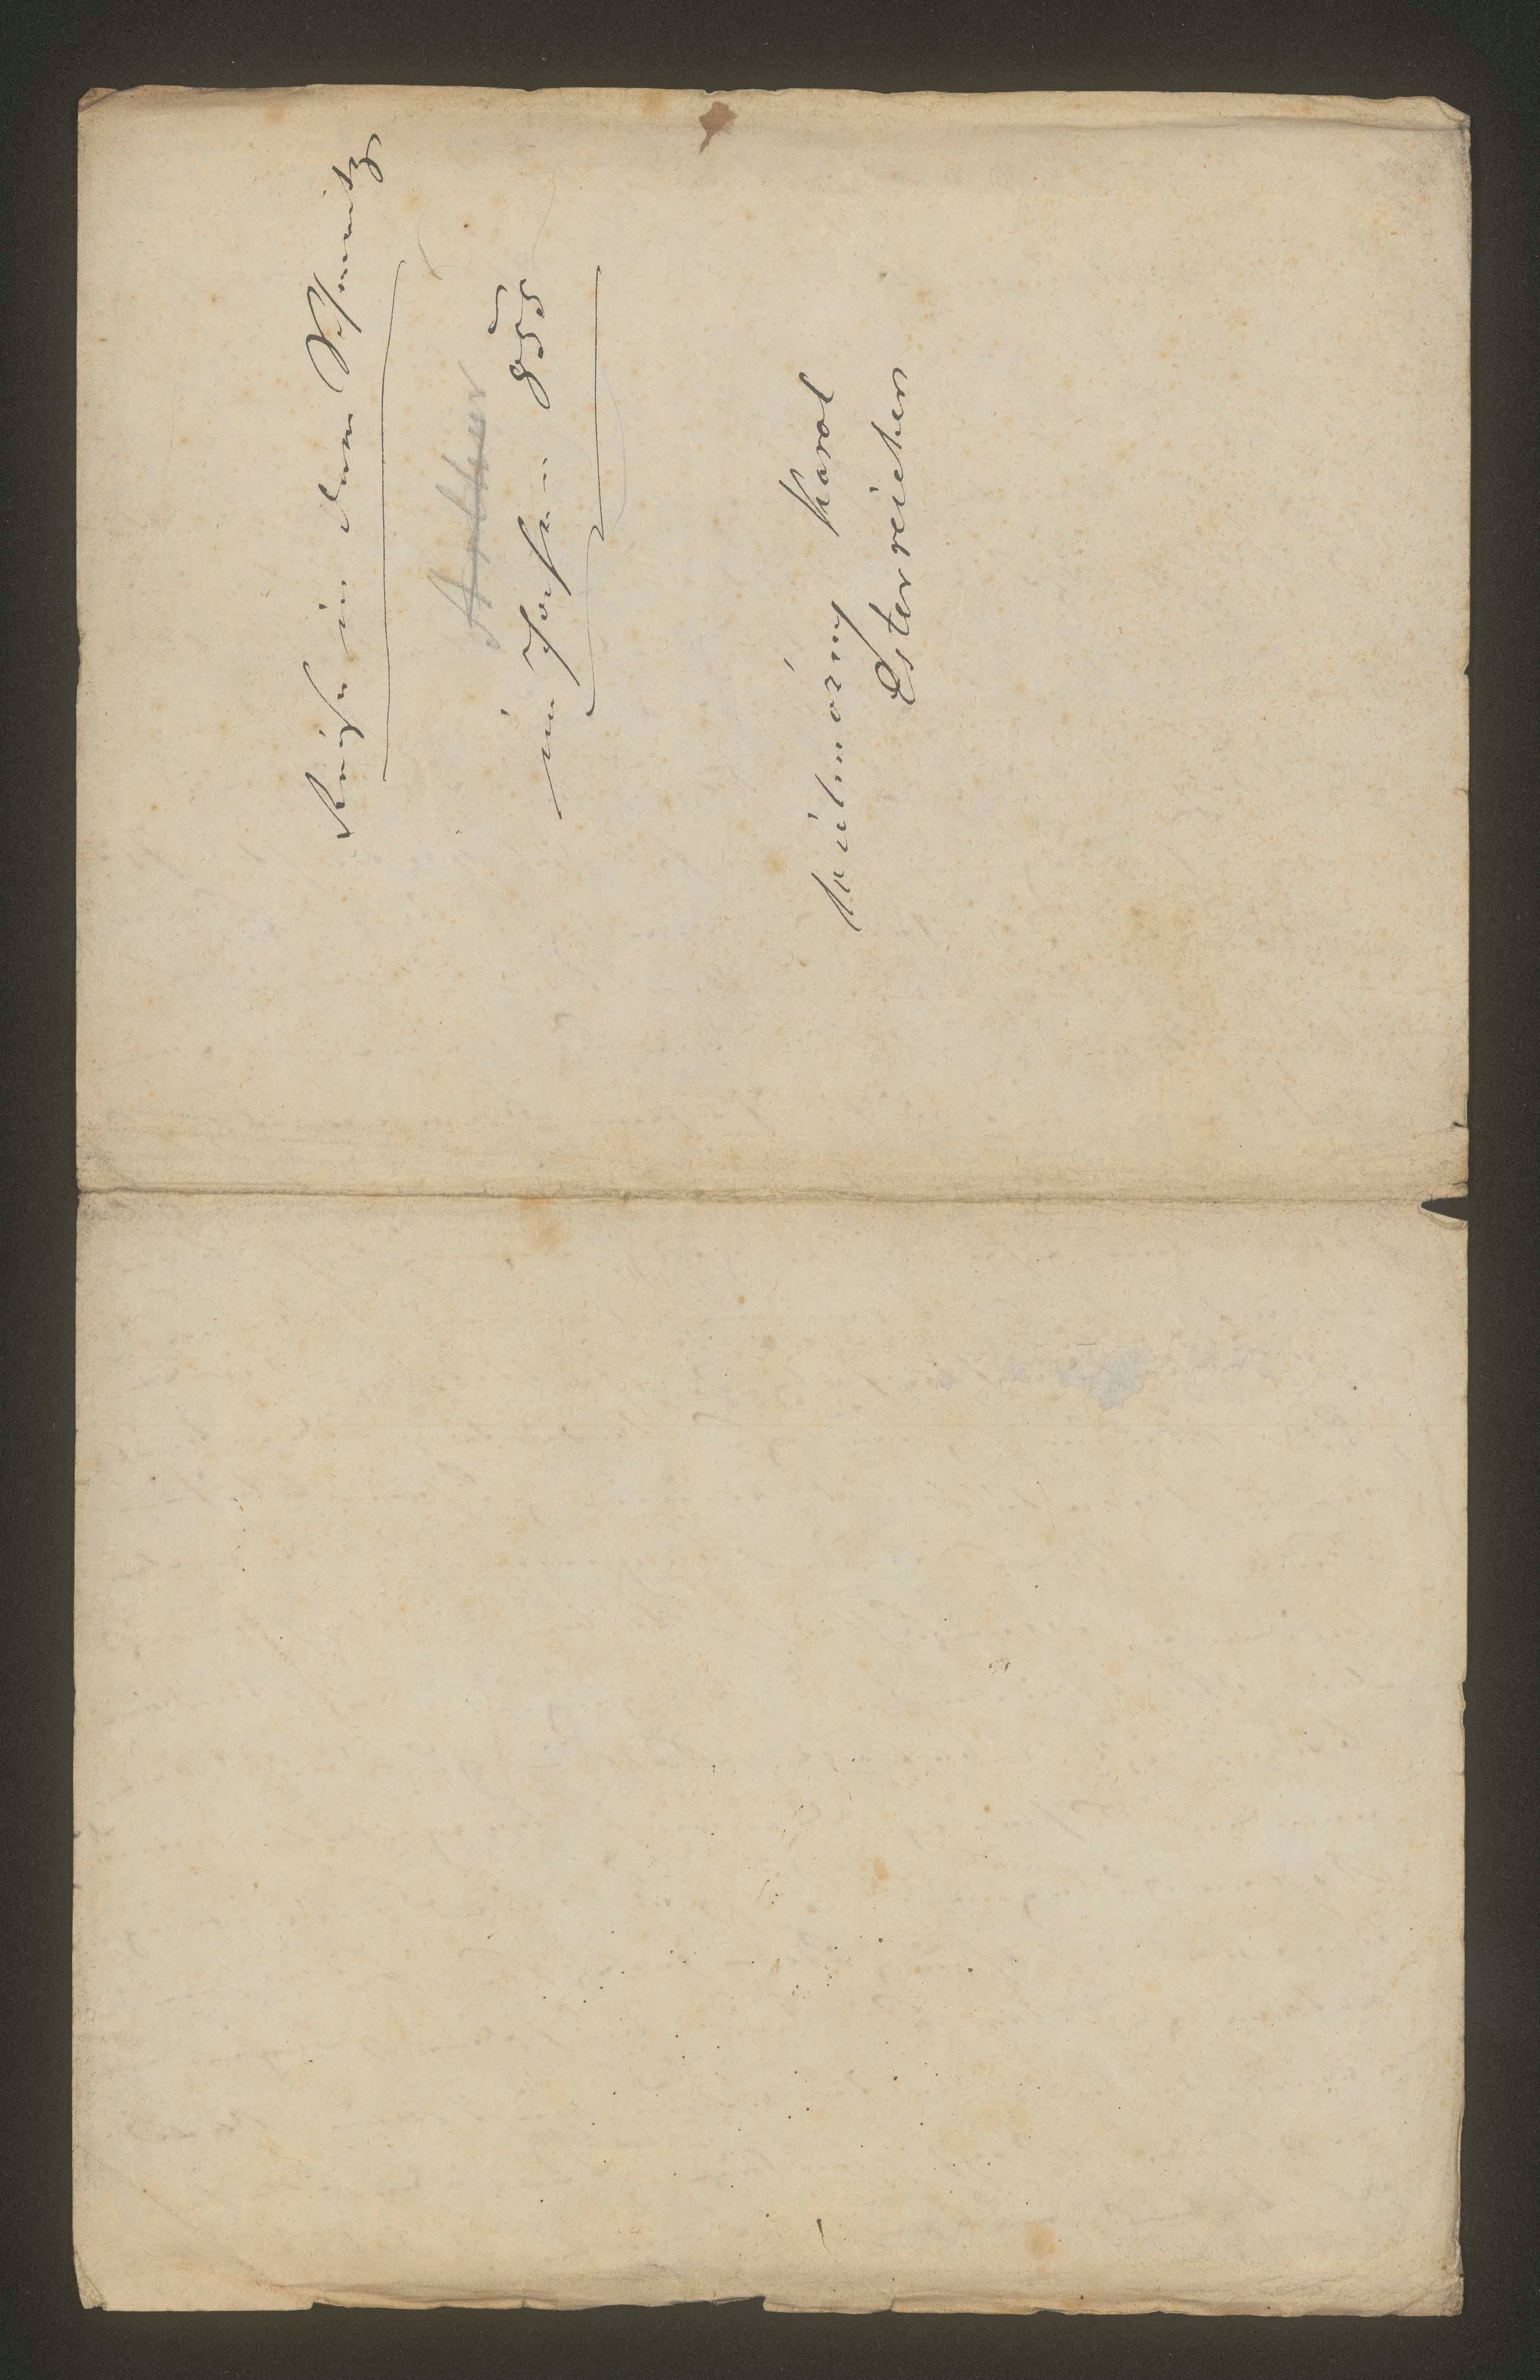 Reise in dem Schemnitz
Arthur
im Jahre 855
Karol
Esterreicher